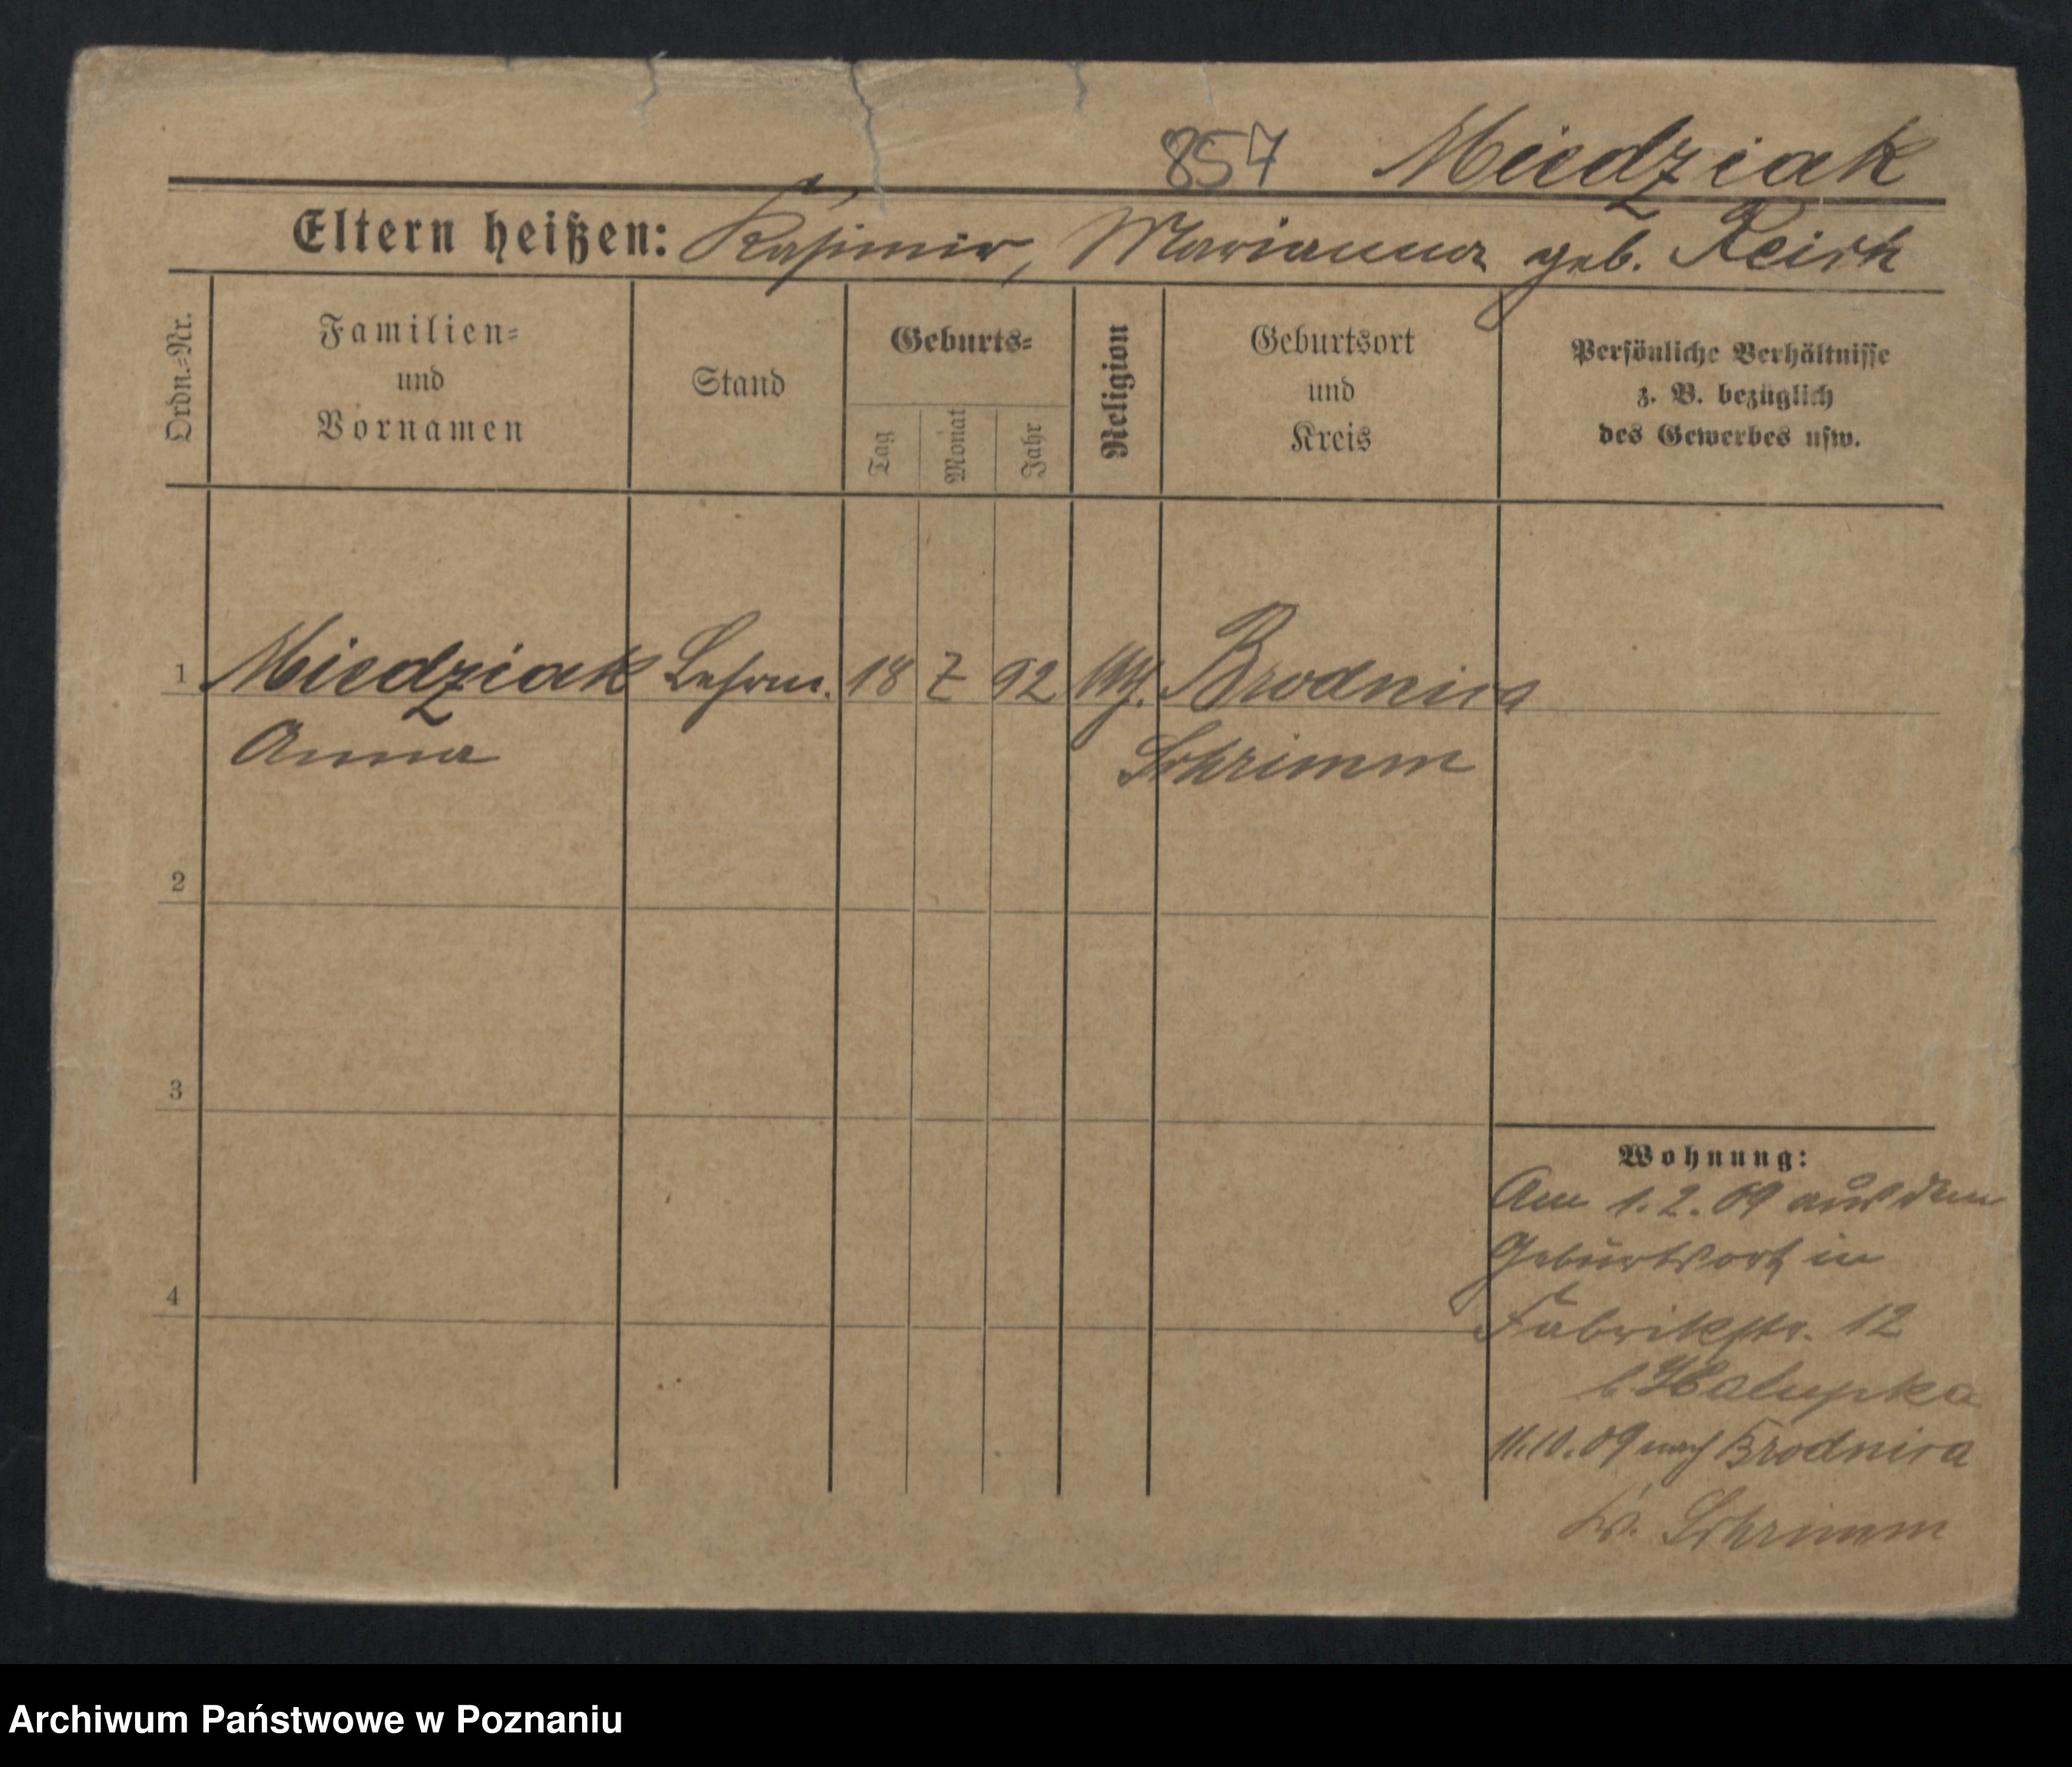 857 Miedziak
Eltern heißen: Kasimir, Marianna geb. Reich
Ordn.=Nr.
Familien=
und
Vornamen
Stand
Geburts=
Tag
Monat
Jahr
Religion
Geburtsort
und
Kreis
Persönliche Verhältnisse
z. B. bezüglich
des Gewerbes usw.
1 Miedziak 18 7 92 Brodnica
Anna Schrimm
2
3
4
Wohnung:
Am 1.2.09 aus dem
Geburtsort in
Fabrikstr. 12
b Halupka
11.10.09 nach Brodnica
Kr. Schrimm
Archiwum Państwowe w Poznaniu